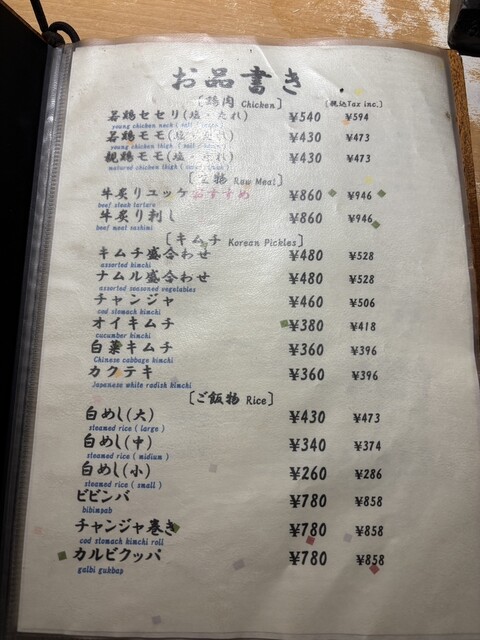 お品書き
〔鶏肉 Chicken〕 (税込Tax inc.)
若鶏セセリ(塩・たれ) ¥540 ¥594
young chicken neck ( salt / sauce )
若鶏モモ(塩・たれ) ¥430 ¥473
young chicken thigh ( salt / sauce )
親鶏モモ(塩・たれ) ¥430 ¥473
matured chicken thigh ( salt / sauce )
〔生物 Raw Meat〕
牛炙りユッケ おすすめ ¥860 ¥946
beef steak tartare
牛炙り刺し ¥860 ¥946
beef meat sashimi
〔キムチ Korean Pickles〕
キムチ盛合わせ ¥480 ¥528
assorted kimchi
ナムル盛合わせ ¥480 ¥528
assorted seasoned vegetables
チャンジャ ¥460 ¥506
cod stomach kimchi
オイキムチ ¥380 ¥418
cucumber kimchi
白菜キムチ ¥360 ¥396
Chinese cabbage kimchi
カクテキ ¥360 ¥396
Japanese white radish kimchi
〔ご飯物 Rice〕
白めし(大) ¥430 ¥473
steamed rice ( large )
白めし(中) ¥340 ¥374
steamed rice ( midium )
白めし(小) ¥260 ¥286
steamed rice ( small )
ビビンバ ¥780 ¥858
bibimbap
チャンジャ巻き ¥780 ¥858
cod stomach kimchi roll
カルビクッパ ¥780 ¥858
galbi gukbap